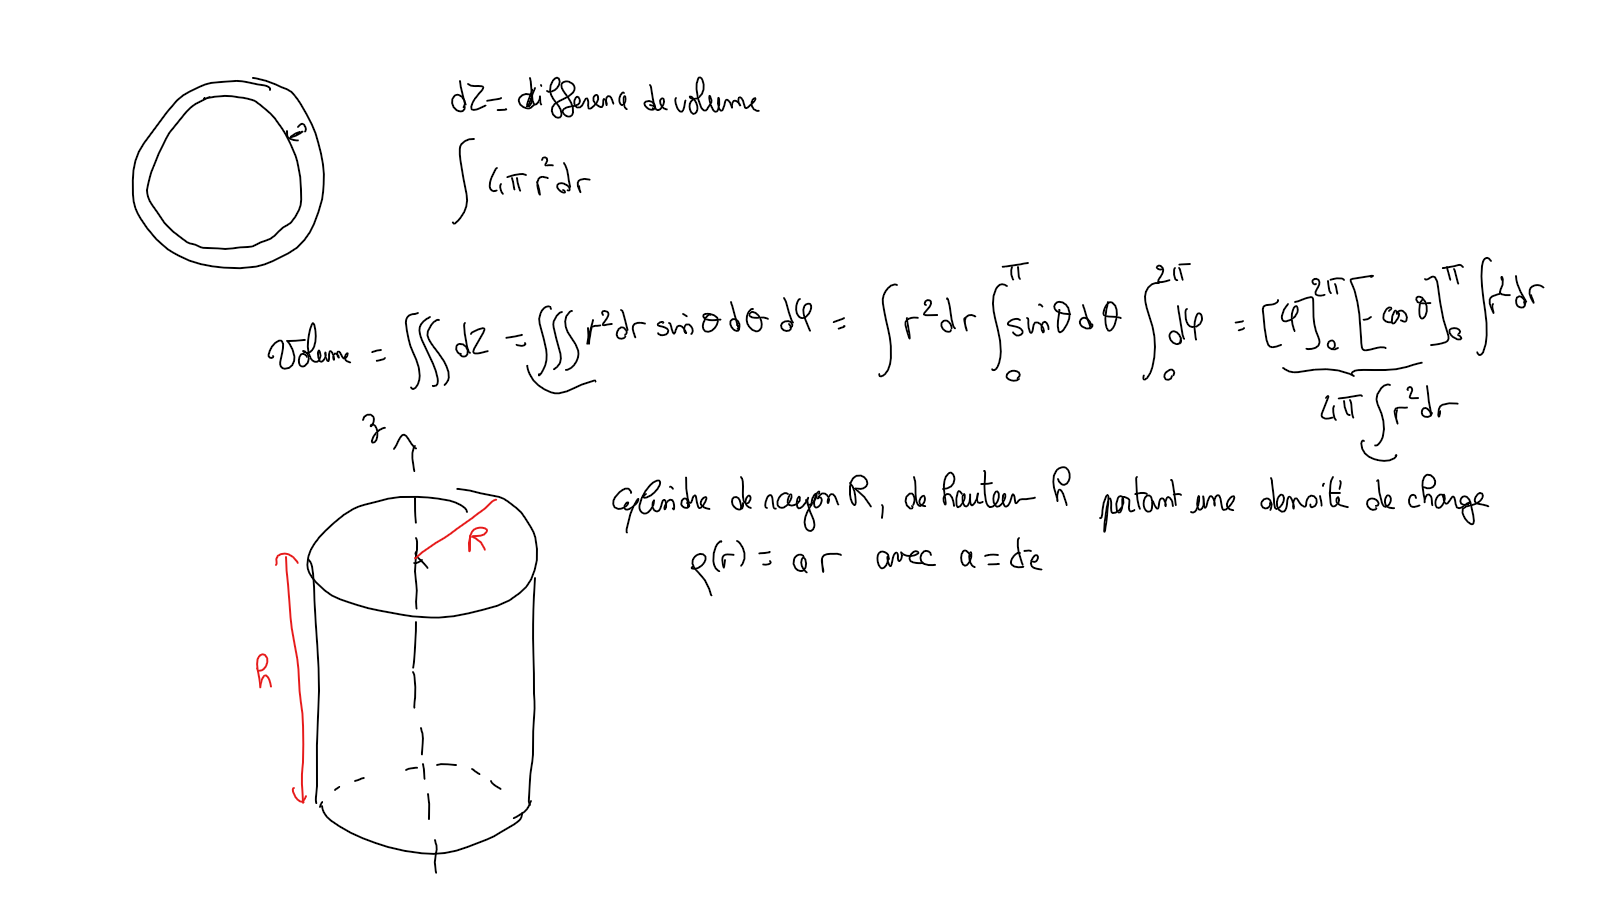 dZ = différence de volume
∫ 4π r² dr
Volume = ∭ dZ = ∭ r² dr sin θ dθ dφ = ∫ r² dr ∫₀^π sin θ dθ ∫₀^2π dφ = [φ]₀^2π [-cos θ]₀^π ∫ r² dr
4π ∫ r² dr
z
Cylindre de rayon R, de hauteur h portant une densité de charge
R
ρ(r) = a r avec a = cte
h